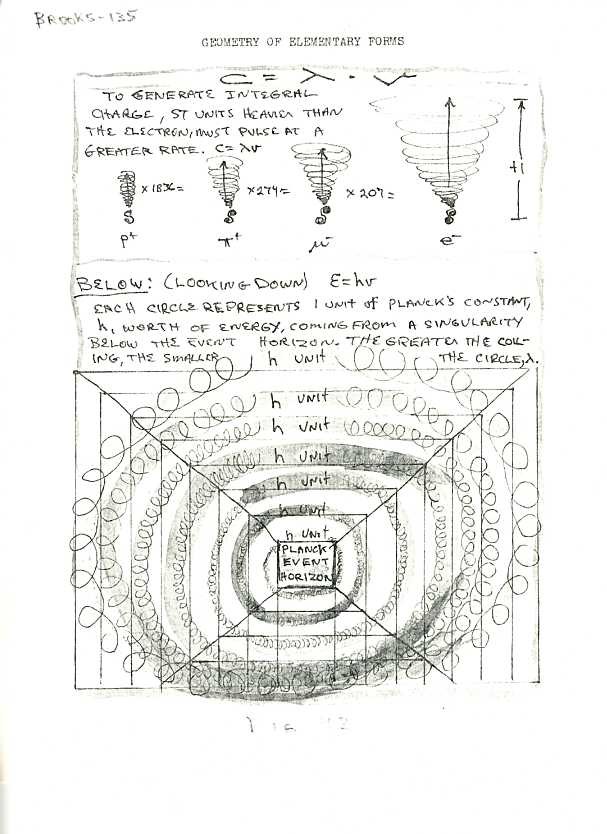 BROOKS-135
GEOMETRY OF ELEMENTARY FORMS
C = λ · ν
TO GENERATE INTEGRAL
CHARGE, ST UNITS HEAVIER THAN
THE ELECTRON, MUST PULSE AT A
GREATER RATE. C = λν
×1836= ×274= ×207= +1
p+ π+ μ- e-
BELOW: (LOOKING DOWN) E=hν
EACH CIRCLE REPRESENTS 1 UNIT of PLANCK'S CONSTANT,
h, WORTH OF ENERGY, COMING FROM A SINGULARITY
BELOW THE EVENT HORIZON. THE GREATER THE COIL-
ING, THE SMALLER THE CIRCLE, λ.
h UNIT
h UNIT
h UNIT
h UNIT
h UNIT
h UNIT
h UNIT
PLANCK
EVENT
HORIZON